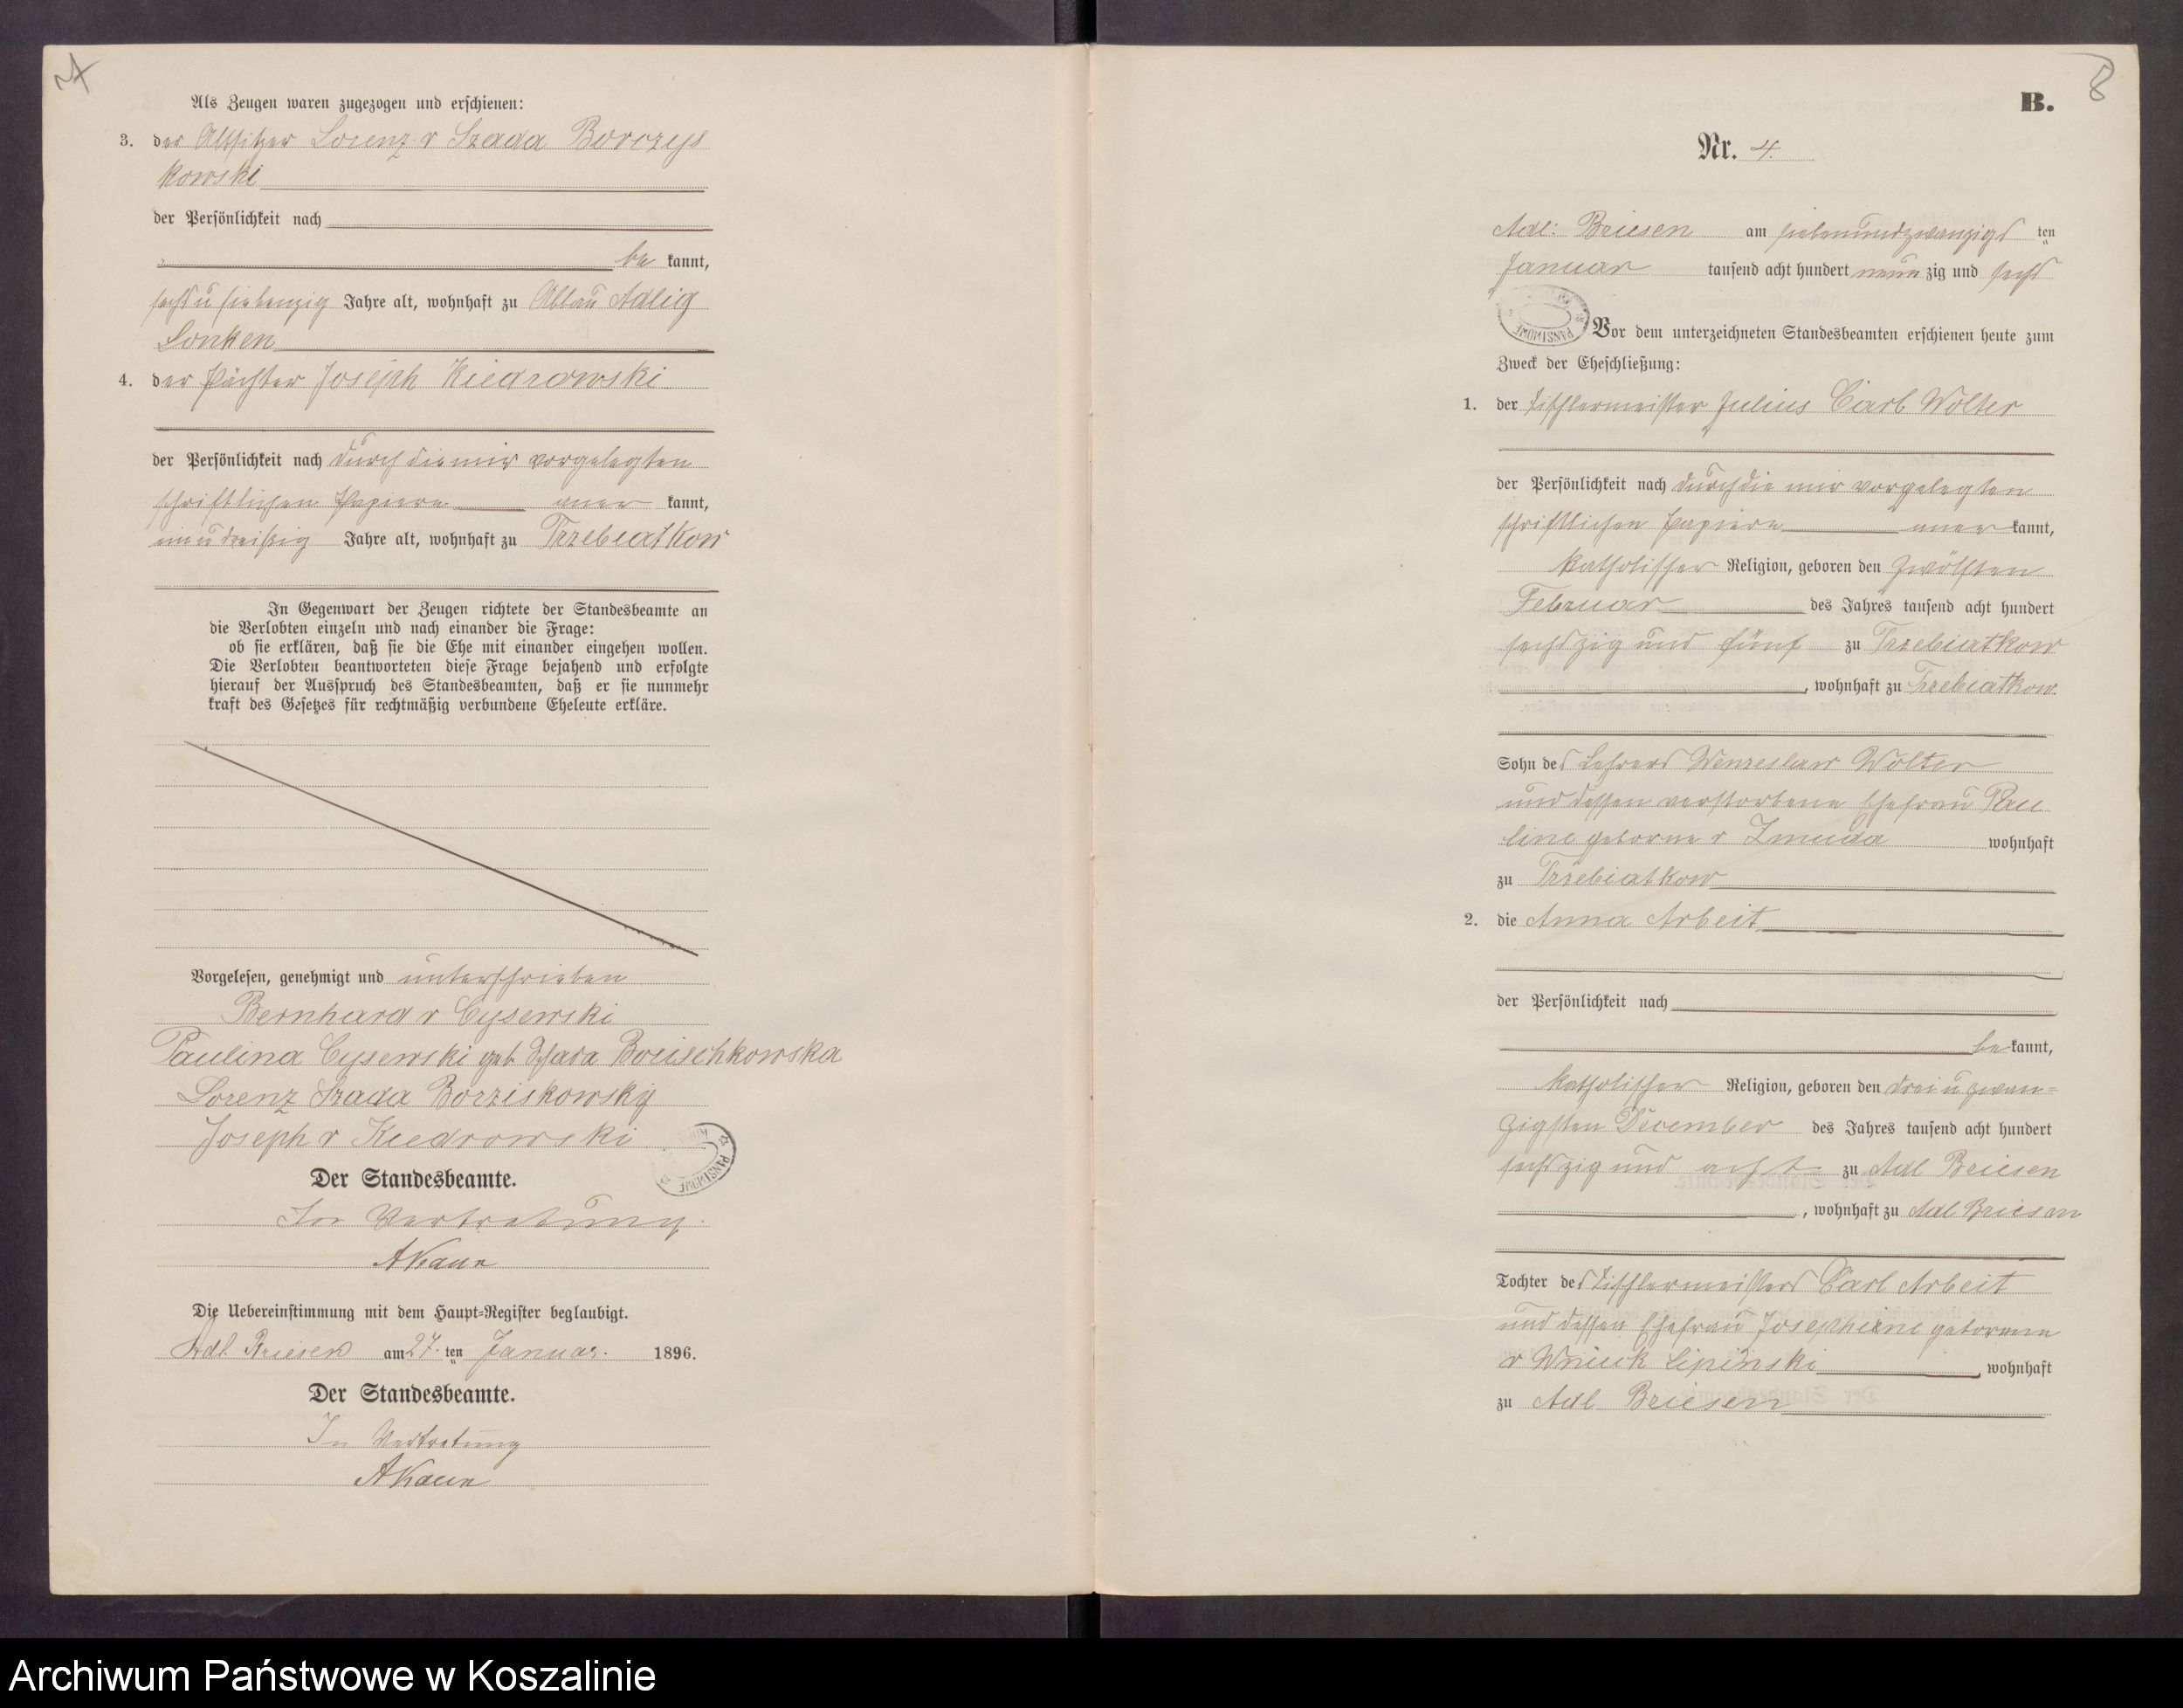 Als Zeugen waren zugezogen und erschienen:
3. der Altsitzer Lorenz v Szada Borczys
kowski
der Persönlichkeit nach
be kannt,
sechs u siebenzig Jahre alt, wohnhaft zu Abbau Adlig
Lonken
4. der Pächter Joseph Kiedrowski
der Persönlichkeit nach durch die mir vorgelegten
schriftlichen Papiere aner kannt,
dreißig Jahre alt, wohnhaft zu Trzebiatkow
In Gegenwart der Zeugen richtete der Standesbeamte an
die Verlobten einzeln und nach einander die Frage:
ob sie erklären, daß sie die Ehe mit einander eingehen wollen.
Die Verlobten beantworteten diese Frage bejahend und erfolgte
hierauf der Ausspruch des Standesbeamten, daß er sie nunmehr
kraft des Gesetzes für rechtmäßig verbundene Eheleute erkläre.
Vorgelesen, genehmigt und unterschrieben
Bernhard v Cysewski
Paulina Cysewski geb Schada Borischkowska
Lorenz Szada Borziskowsky
Joseph v Kiedrowski
PANSTWOWE
Der Standesbeamte.
In Vertretung.
AKaun
Die Uebereinstimmung mit dem Haupt-Register beglaubigt.
Adl. Briesen am 27. ten Januar. 1896.
Der Standesbeamte.
In Vertretung
AKaun
8
B.
Nr. 4.
Adl: Briesen am siebenundzwanzigs ten
Januar tausend acht hundert neun zig und sechs
PANSTWOWE
Vor dem unterzeichneten Standesbeamten erschienen heute zum
Zweck der Eheschließung:
1. der Tischlermeister Julius Carl Wolter
der Persönlichkeit nach durch die mir vorgelegten
schriftlichen Papiere aner kannt,
katholischer Religion, geboren den zwölften
Februar des Jahres tausend acht hundert
sechszig und fünf zu Trzebiatkow
, wohnhaft zu Trzebiatkow.
Sohn des Lehrers Wenzeslaw Wolter
und dessen verstorbene Ehefrau Pau
line geborne v Zmuda wohnhaft
zu Trzebiatkow
2. die Anna Arbeit
der Persönlichkeit nach
be kannt,
katholischer Religion, geboren den drei u zwan=
zigsten December des Jahres tausend acht hundert
sechszig und acht zu Adl Briesen
, wohnhaft zu Adl Briesen
Tochter des Tischlermeisters Carl Arbeit
und dessen Ehefrau Josephine geborene
v Wnuck Lipinski wohnhaft
zu Adl. Briesen
Archiwum Państwowe w Koszalinie